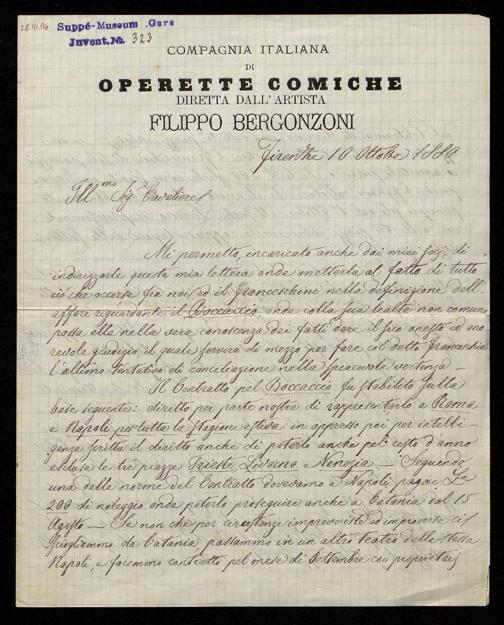 Suppé-Museum, Gars
Invent. No. 323
COMPAGNIA ITALIANA
DI
OPERETTE COMICHE
DIRETTA DALL'ARTISTA
FILIPPO BERGONZONI
Firenze 10 Ottobre 1880
Ill.mo Sig. Cavaliere
Mi permetto, incaricato anche dai miei socj, di
indirizzarle questa mia lettera onde metterla al fatto di tutto
ciò che occorse fra noi ed il Franceschini nella definizione dell'
affare riguardante il Boccaccio onde colla sua lealtà non comune
possa ella nella vera conoscenza dei fatti dare il suo onesto ed ono-
revole giudizio il quale servirà di mezzo per fare col detto Franceschini
l'ultimo tentativo di conciliazione nella spiacevole vertenza —
Il Contratto pel Boccaccio fu stabilito sulla
base seguente: diritto per parte nostra di rappresentarlo a Roma
e Napoli per tutta la stagione estiva in appresso poi per intelli-
genza scritta il diritto anche di poterlo anche pel resto d'anno
escluse le tre piazze Trieste, Livorno e Venezia — Seguendo
una delle norme del Contratto dovevamo a Napoli pagare Le
200 di noleggio onde poterlo proseguire anche a Catania dal 15
Agosto — Se non che per circostanze imprevviste ed improvvise ci
sciogliemmo da Catania passammo in un altro teatro della stessa
Napoli, e facemmo contratto pel mese di Settembre coi proprietarj